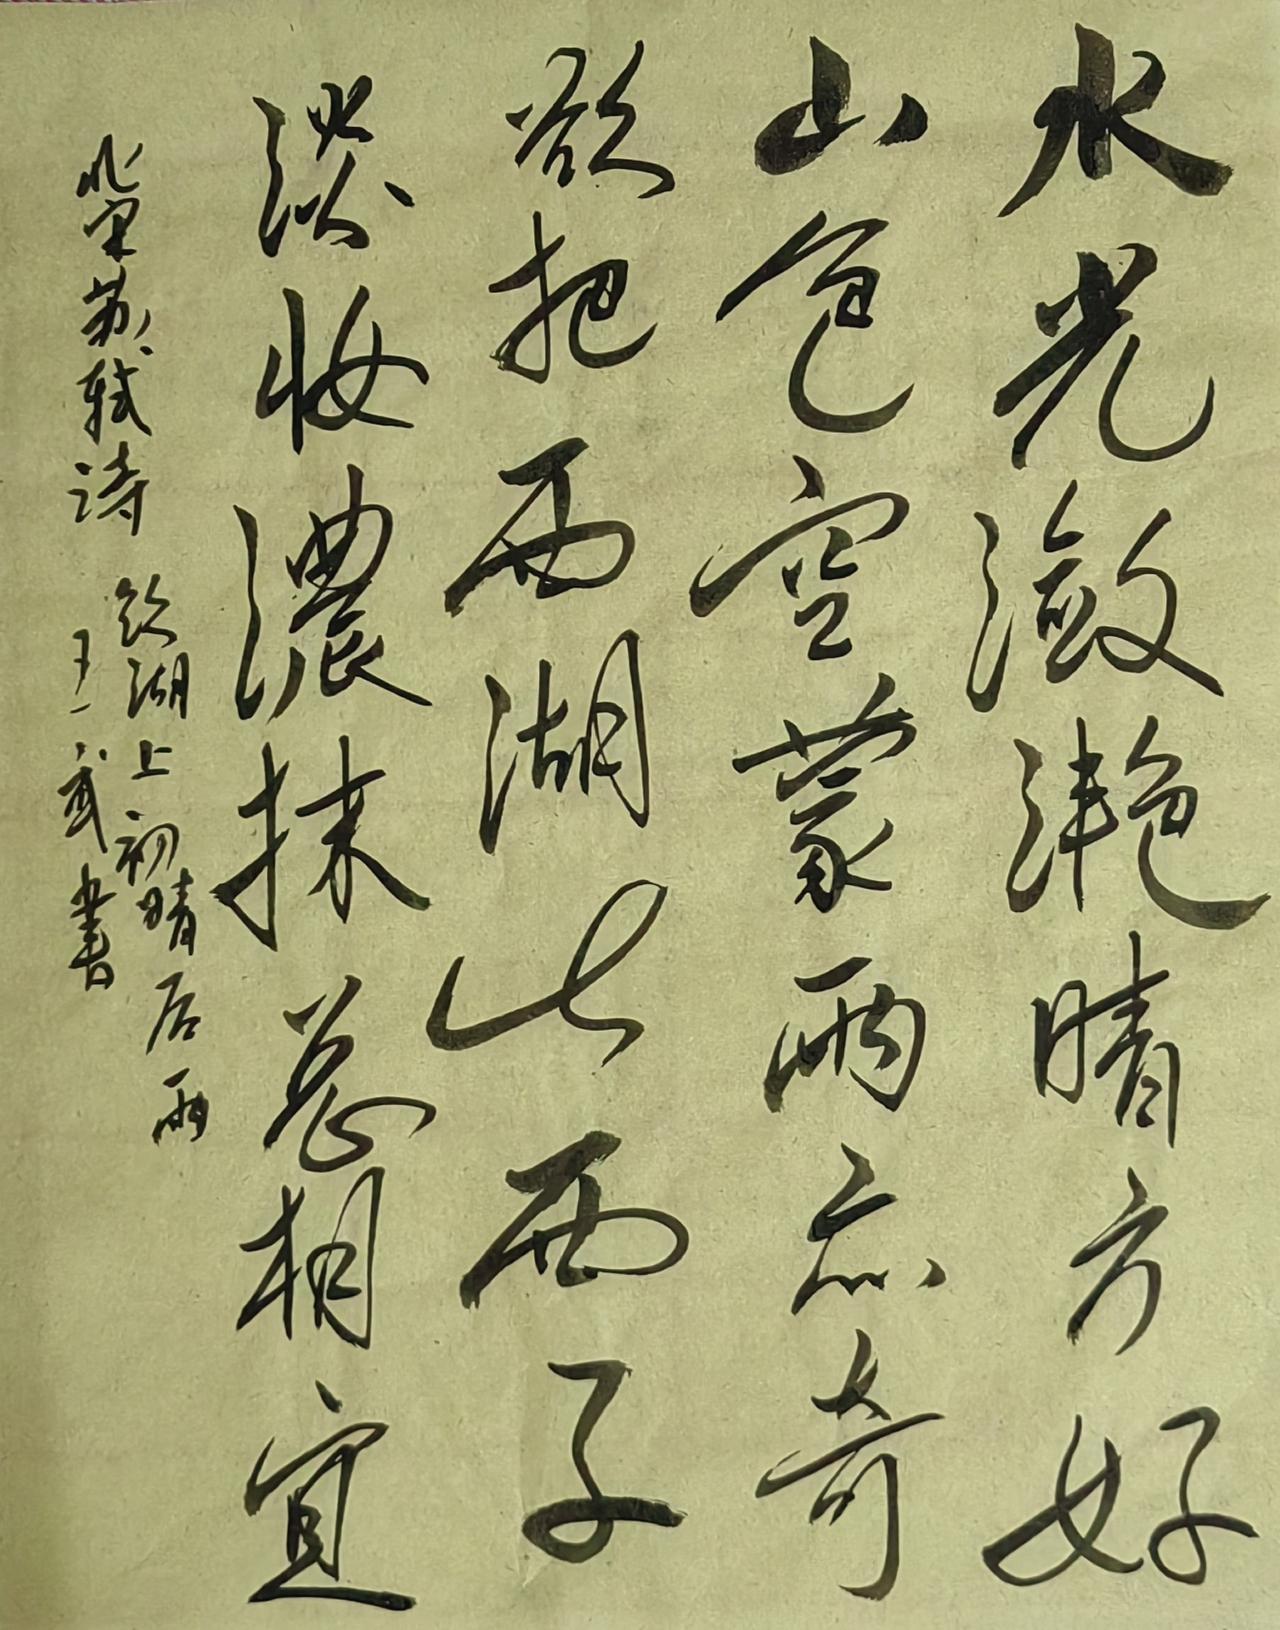 水光潋滟晴方好
山色空蒙雨亦奇
欲把西湖比西子
淡妆浓抹总相宜
北宋苏轼诗 饮湖上初晴后雨
王一武书